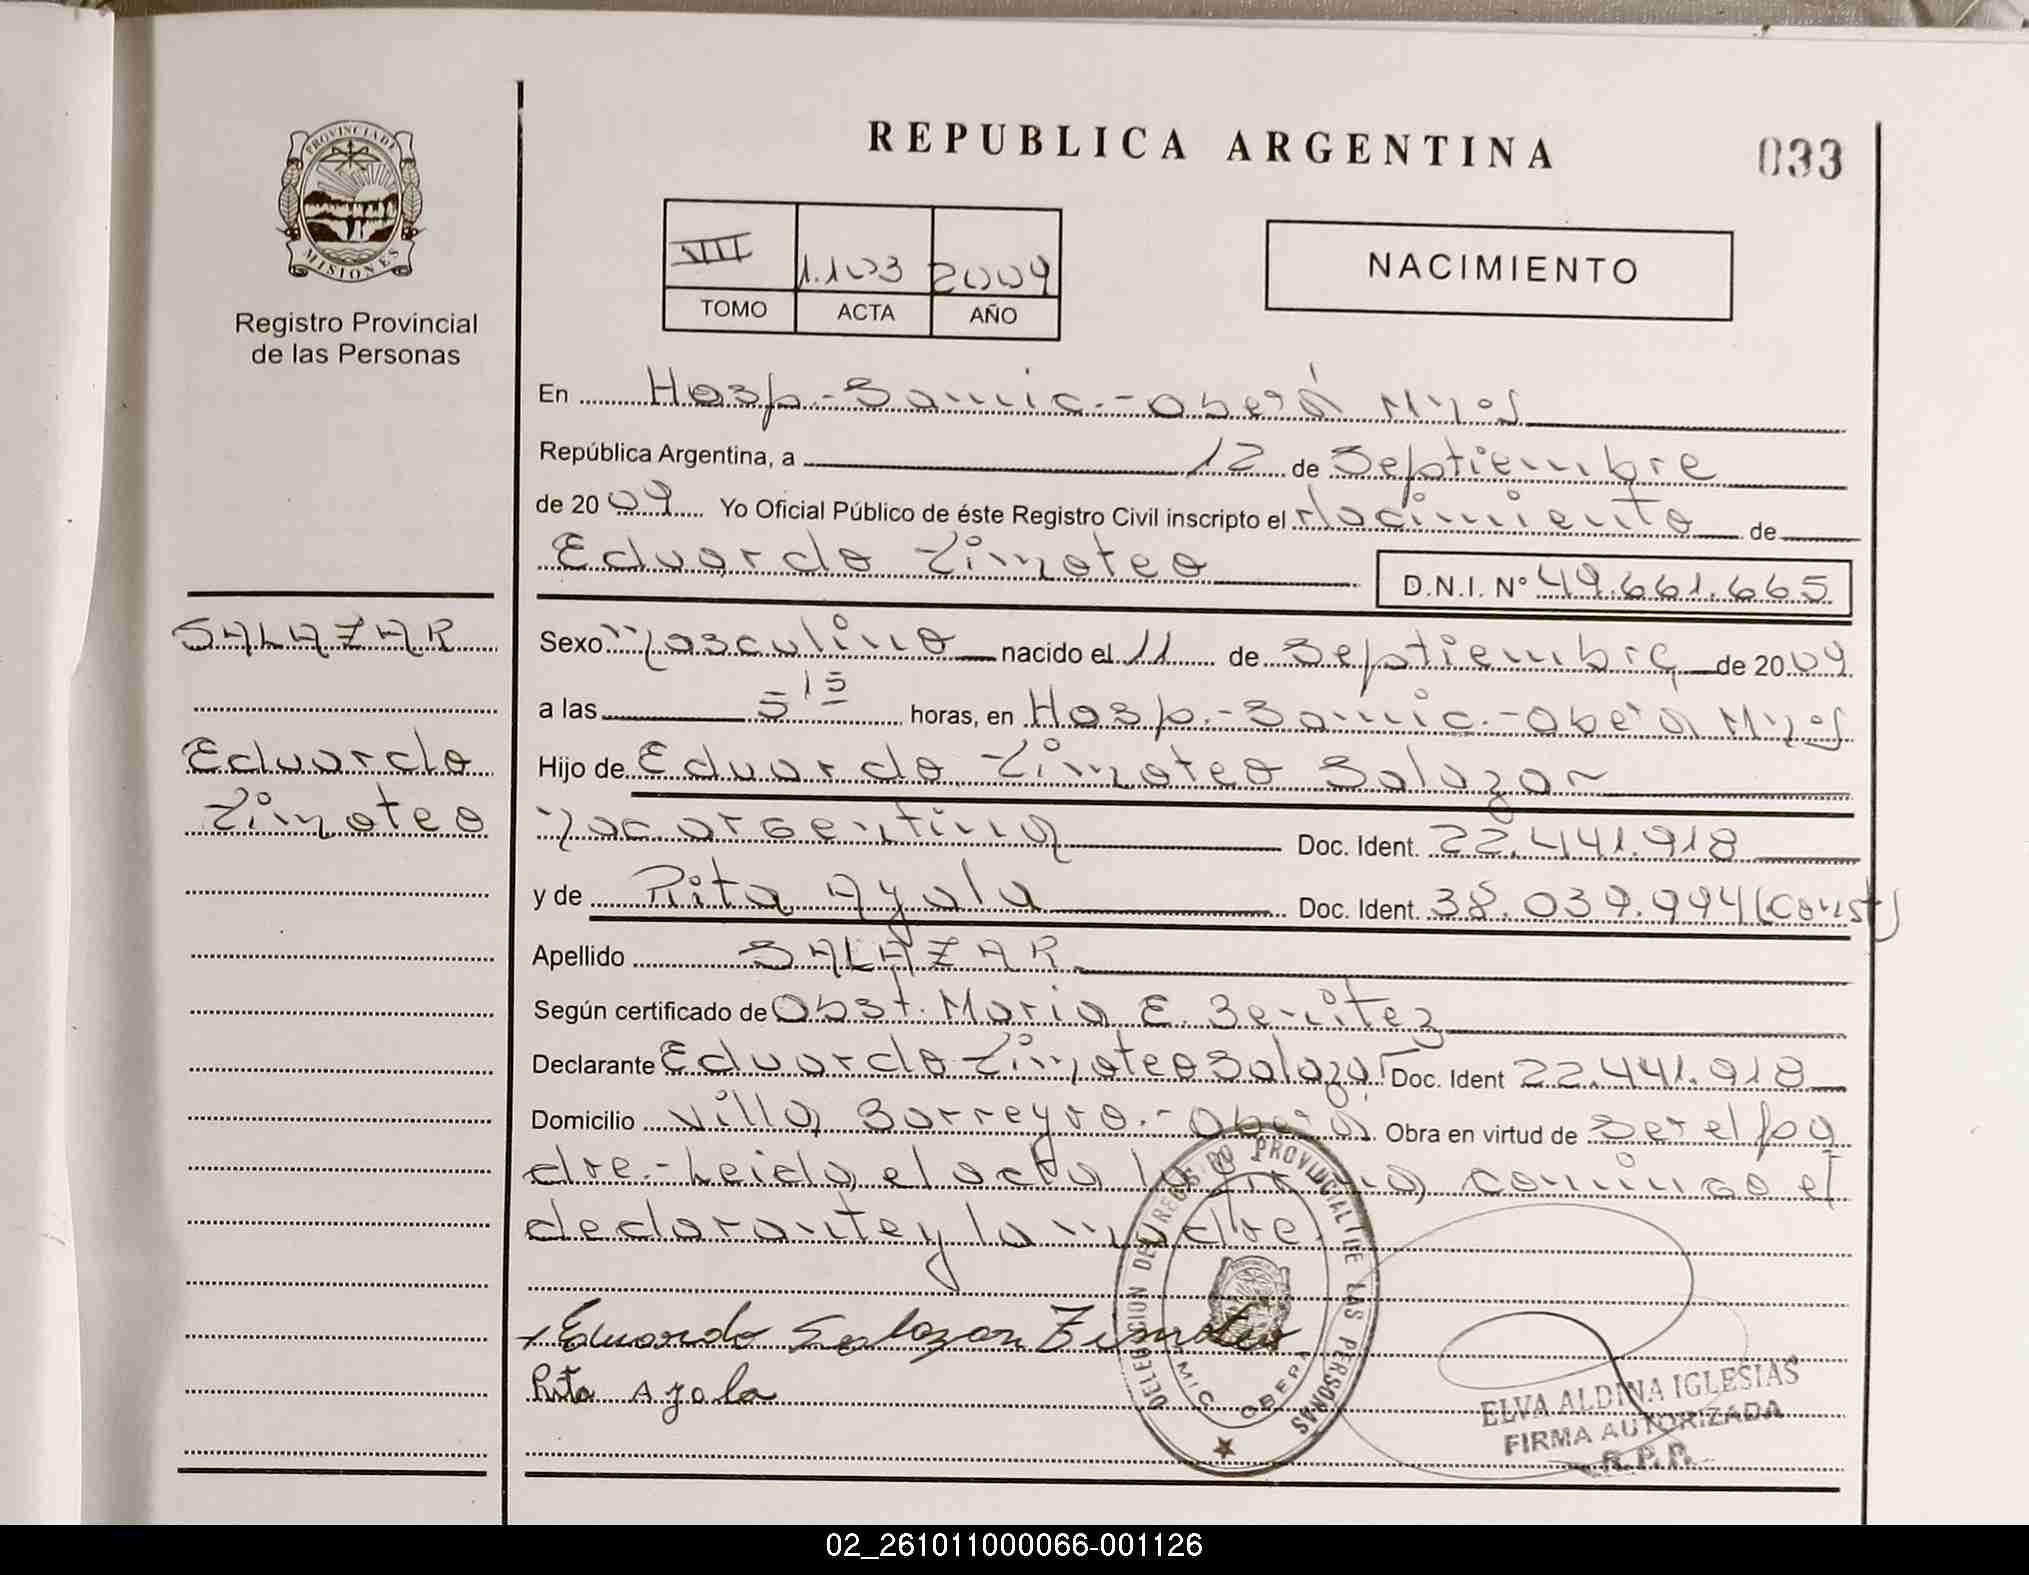 REPUBLICA ARGENTINA
033
PROVINCIA DE
MISIONES
Registro Provincial
de las Personas
VIII 1.103 2009
TOMO ACTA AÑO
NACIMIENTO
En Hosp.-Samic.-Oberá Mnes
República Argentina, a 12 de Septiembre
de 2009 Yo Oficial Público de éste Registro Civil inscripto el Nacimiento de
Eduardo Timoteo
D.N.I. Nº 49.661.665
SALAZAR
Eduardo
Timoteo
Sexo Masculino nacido el 11 de Septiembre de 2009
a las 5 15 horas, en Hosp.-Samic.-Oberá Mnes
Hijo de Eduardo Timoteo Salazar
Nac argentina Doc. Ident. 22.441.918
y de Rita Ayala Doc. Ident. 38.039.994 (Const)
Apellido SALAZAR
Según certificado de Obst. Maria E. Benitez
Declarante Eduardo Timoteo Salazar Doc. Ident 22.441.918
Domicilio Villa Barreyro.-Oberá Obra en virtud de Ser el pa
dre.-Leida el acta la firma conmigo el
declarante y la madre.
Eduardo Salazar Timoteo
Rita Ayala
DELEGACION DEL REGISTRO PROVINCIAL DE LAS PERSONAS
OBERA
ELVA ALDINA IGLESIAS
FIRMA AUTORIZADA
R.P.P.
02_261011000066-001126